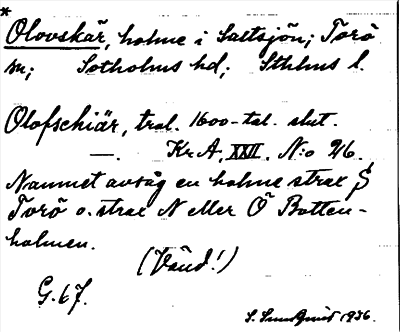 *
Olovskär, holme i Saltsjön; Torö
sn; Sotholms hd; Sthlms l.
Olofschiär, trol. 1600-tal. slut.
—. Kr A, XXII. N:o 26.
Namnet avsåg en holme strax S
Torö o. strax N eller Ö Botten-
holmen.
(Vänd!)
G. 67.
S. Sundqvist 1936.